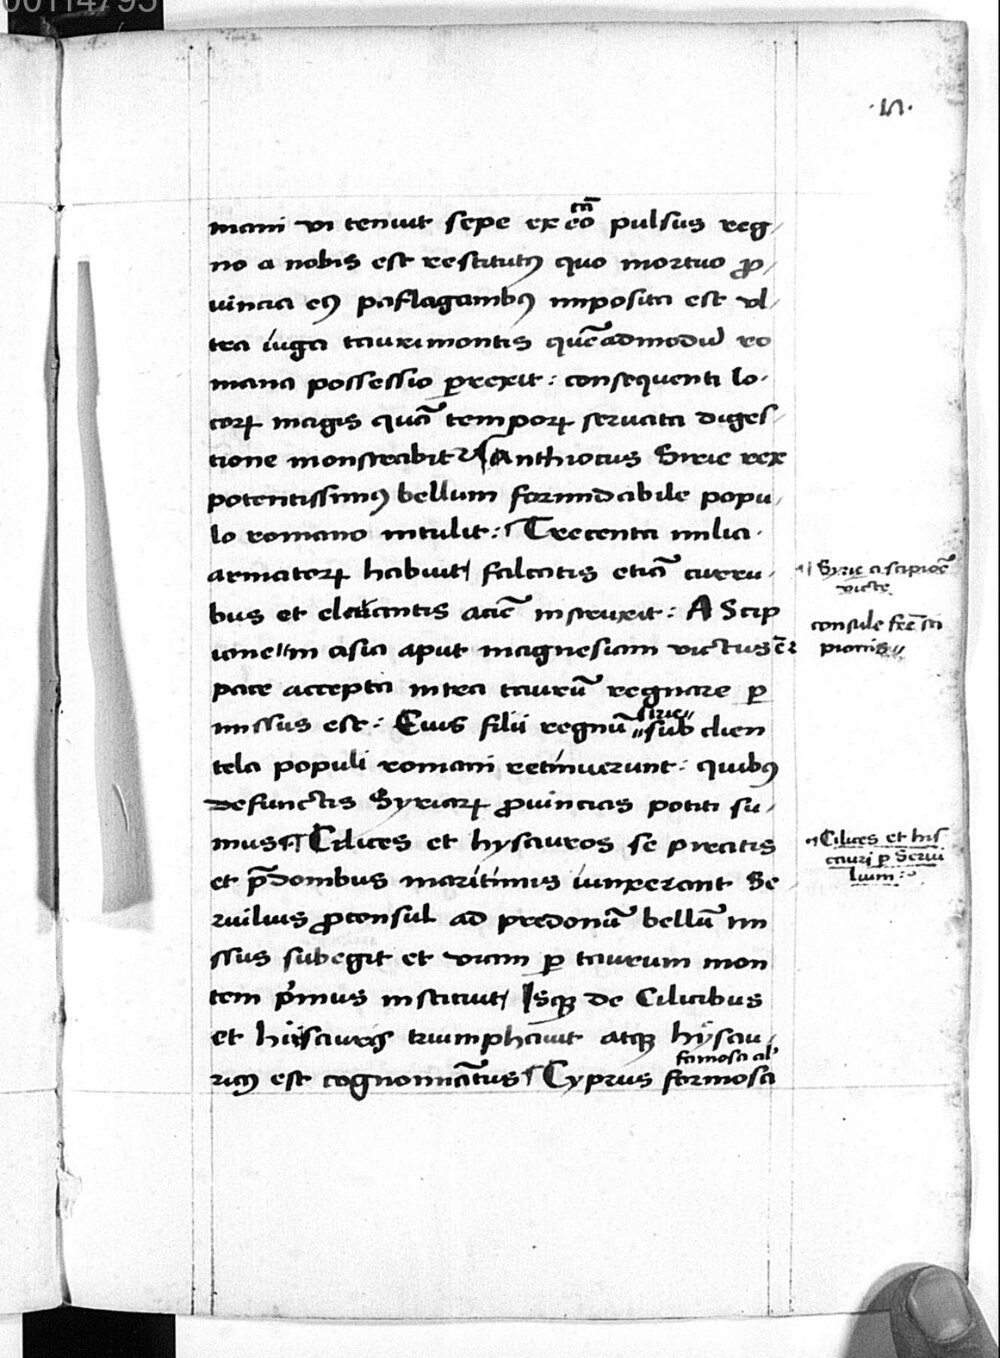 00114795
mani vi tenuit sepe ex eo tñ pulsus reg/
no a nobis est restitutꝯ quo mortuo ꝓ/
uincia eiꝯ paflagambꝯ imposita est vl/
tra iuga tauri montis quēadmodū ro
mana possessio ꝑrexit : consequenti lo-
corꝝ magis quā temporꝝ seruata diges/
tione monstrabitr Anthiocus Sirie rex
potentissimꝯ bellum formidabile popu/
lo romano intulit : Trecenta milia
armatorꝝ habuit/ falcatis etiā curru/
bus et elefantis aciē instruxit : A Scip
ione in asia aput magnesiam victus
pace accepta intra taurū regnare ꝑ
missus est : Eius filii regnū sirie sub clien
tela populi romani retinuerunt : quibꝯ
defunctis Syriarꝝ ꝓuincias potiti su/
mus Cilices et hysauros se piratis
et p̄donibus maritimis iunxerant Se/
ruilius ꝓconsul ad predonū bellū mi
ssus subegit et viam ꝑ taurum mon
tem pⁱmus instituit/ Isqꝫ de Cilicibus
et hisauris triumphauit atqꝫ hÿsau/
ricꝯ est cognominātus Cyprus formosa
famosa al'
Syrie a scipiōe
victe
consule frē sci
pionis
Cilices et his
auri ꝑ Serui
lium